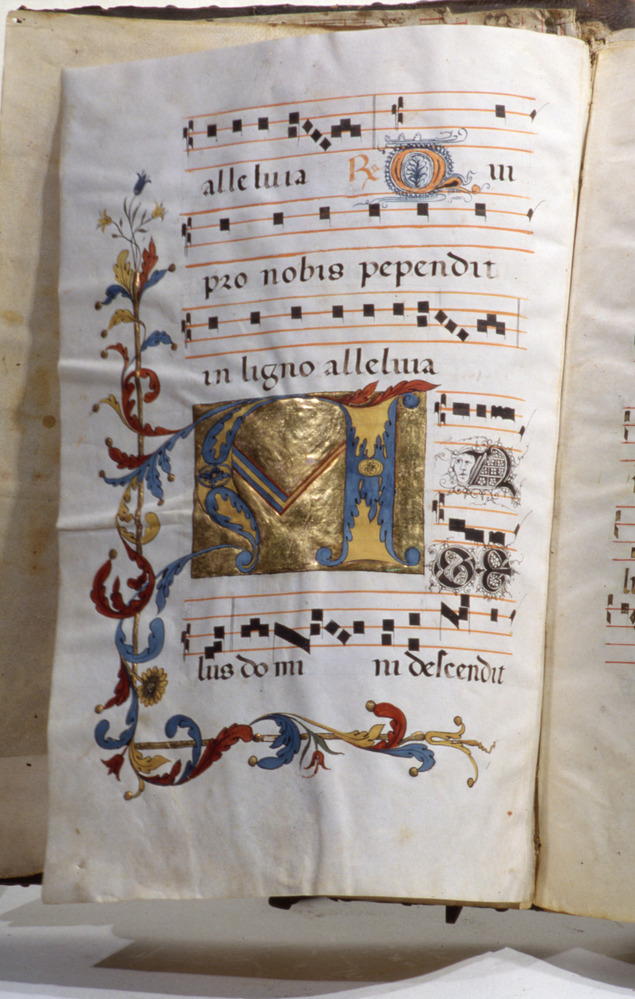 alleluia Re Q ui
pro nobis pependit
in ligno alleluia
A N
GE
lus do mi ni descendit